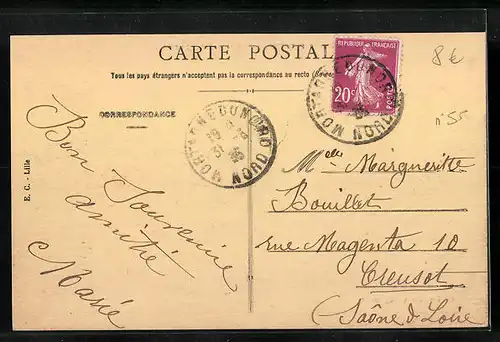 CARTE POSTALE
Tous les pays étrangers n'acceptent pas la correspondance au recto
CORRESPONDANCE
E. C. - Lille
Bon Souvenir
amitié
Marie
MORTAGNE DU NORD
NORD
REPUBLIQUE FRANÇAISE
20c
POSTES
MORTAGNE DU NORD
8€
n°55
Melle Marguerite
Bouillet
rue Magenta 10
Creusot
(Saône & Loire